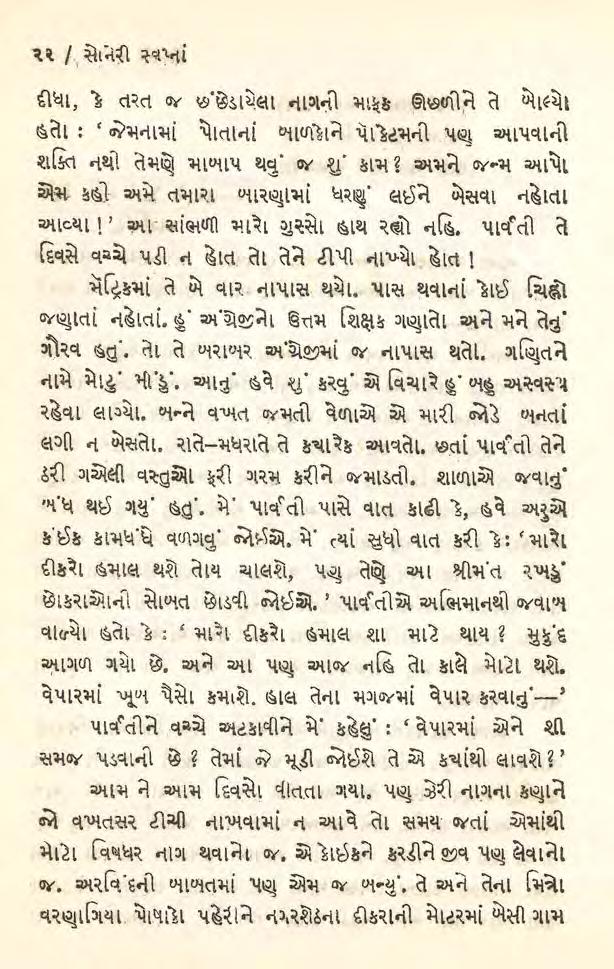 ૨૨ / સોનેરી સ્વપ્નાં
દીધા, કે તરત જ છંછેડાયેલા નાગની માફક ઊછળીને તે બોલ્યો
હતો : ‘ જેમનામાં પોતાનાં બાળકોને પૉકેટમની પણ આપવાની
શક્તિ નથી તેમણે માબાપ થવું જ શું કામ ? અમને જન્મ આપો
એમ કહો અમે તમારા બારણામાં ધરણું લઈને બેસવા નહોતા
આવ્યા ! ’ આ સાંભળી મારો ગુસ્સો હાથ રહ્યો નહિ. પાર્વતી તે
દિવસે વચ્ચે પડી ન હોત તો તેને ટીપી નાખ્યો હોત !
મૅટ્રિકમાં તે બે વાર નાપાસ થયો. પાસ થવાનાં કોઈ ચિહ્નો
જણાતાં નહોતાં. હું અંગ્રેજીનો ઉત્તમ શિક્ષક ગણાતો અને મને તેનું
ગૌરવ હતું. તો તે બરાબર અંગ્રેજીમાં જ નાપાસ થતો. ગણિતને
નામે મોટું મીંડું. આનું હવે શું કરવું એ વિચારે હું બહુ અસ્વસ્થ
રહેવા લાગ્યો. બન્ને વખત જમતી વેળાએ એ મારી જોડે બનતાં
લગી ન બેસતો. રાતે–મધરાતે તે ક્યારેક આવતો. છતાં પાર્વતી તેને
ઠરી ગએલી વસ્તુઓ ફરી ગરમ કરીને જમાડતી. શાળાએ જવાનું
બંધ થઈ ગયું હતું. મેં પાર્વતી પાસે વાત કાઢી કે, હવે અરુએ
કંઈક કામધંધે વળગવું જોઈએ. મેં ત્યાં સુધી વાત કરી કે : ‘ મારો
દીકરો હમાલ થશે તોય ચાલશે, પણ તેણે આ શ્રીમંત રખડું
છોકરાઓની સોબત છોડવી જોઈએ. ’ પાર્વતીએ અભિમાનથી જવાબ
વાળ્યો હતો કે : ‘ મારો દીકરો હમાલ શા માટે થાય ? મુકુંદ
આગળ ગયો છે. અને આ પણ આજ નહિ તો કાલે મોટો થશે.
વેપારમાં ખૂબ પૈસો કમાશે. હાલ તેના મગજમાં વેપાર કરવાનું—’
પાર્વતીને વચ્ચે અટકાવીને મેં કહેલું : ‘ વેપારમાં એને શી
સમજ પડવાની છે ? તેમાં જે મૂડી જોઈશે તે એ ક્યાંથી લાવશે ? ’
આમ ને આમ દિવસો વીતતા ગયા. પણ ઝેરી નાગના કણાને
જો વખતસર ટીચી નાખવામાં ન આવે તો સમય જતાં એમાંથી
મોટો વિષધર નાગ થવાનો જ. એ કોઇકને કરડીને જીવ પણ લેવાનો
જ. અરવિંદની બાબતમાં પણ એમ જ બન્યું. તે અને તેના મિત્રો
વરણાગિયા પોષાકો પહેરીને નગરશેઠના દીકરાની મોટરમાં બેસી ગામ